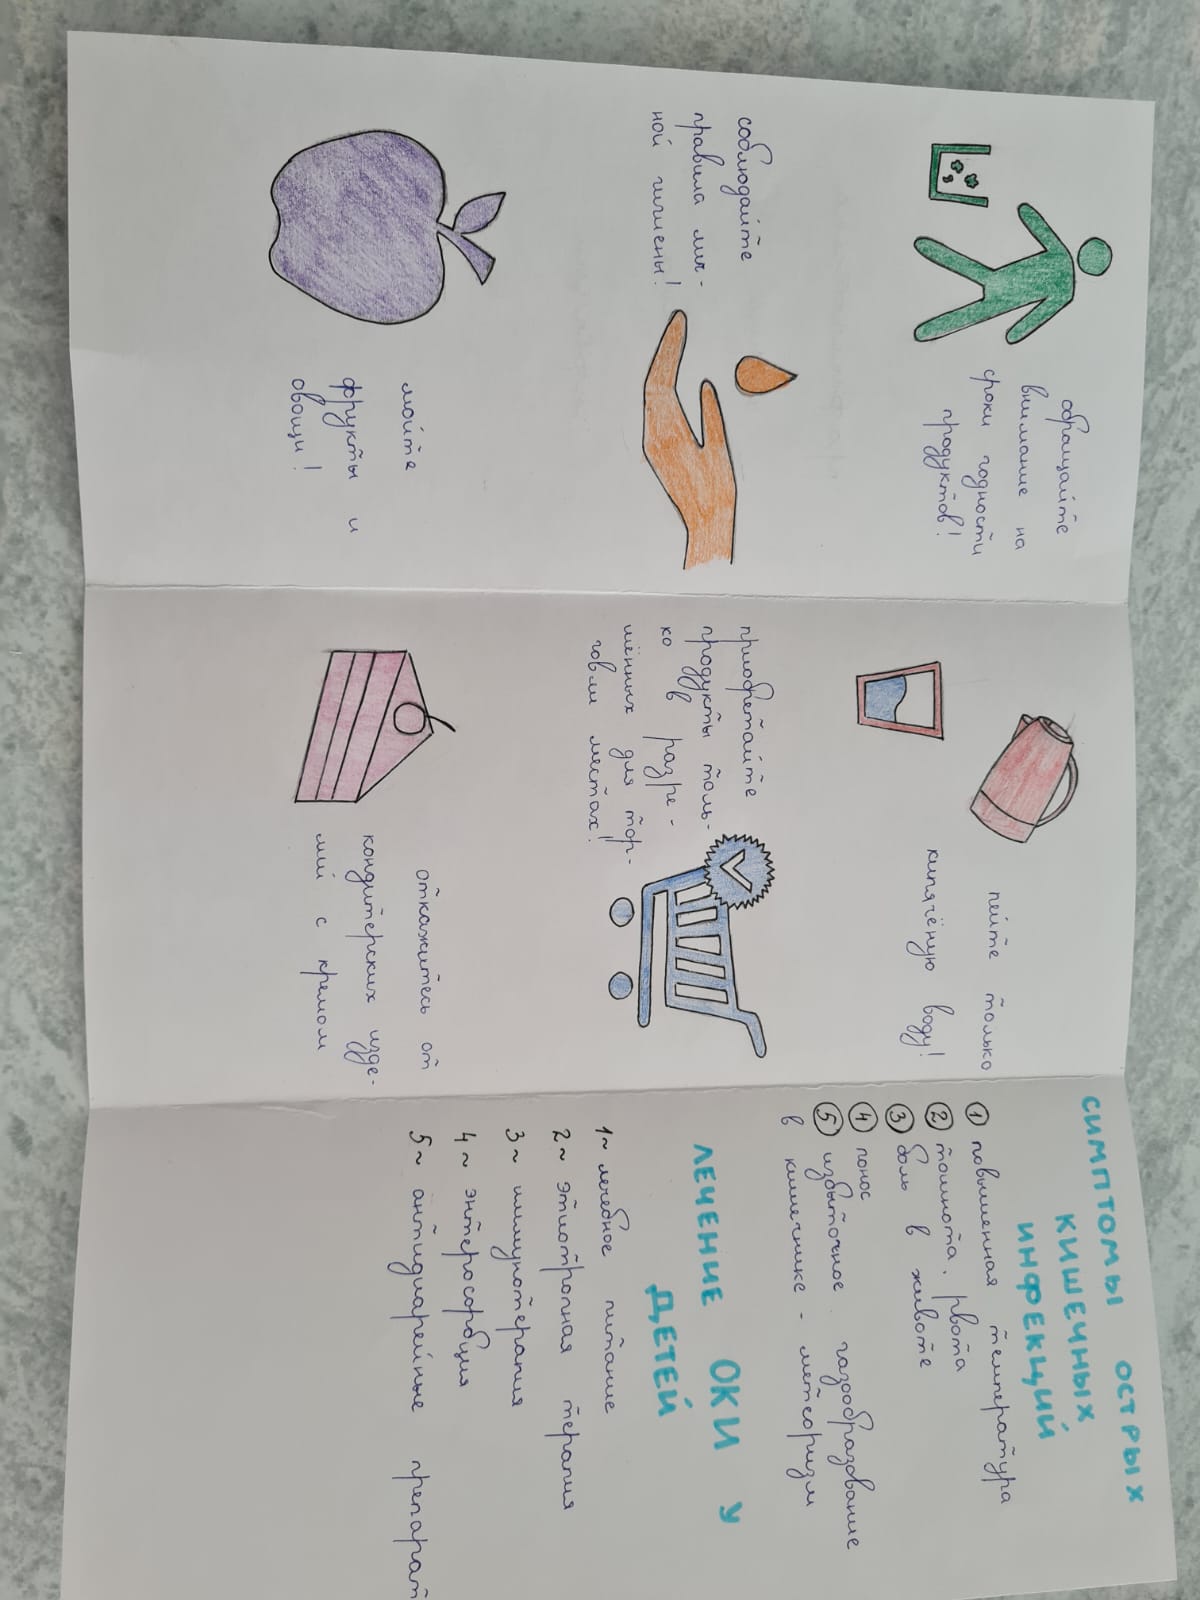 обращайте
внимание на
сроки годности
продуктов!
соблюдайте
правила лич-
ной гигиены!
мойте
фрукты и
овощи!
пейте только
кипячёную воду!
приобретайте
продукты толь-
ко в разре-
шённых для тор-
говли местах!
откажитесь от
кондитерских изде-
лий с кремом
СИМПТОМЫ ОСТРЫХ
КИШЕЧНЫХ
ИНФЕКЦИЙ
1 повышенная температура
2 тошнота, рвота
3 боль в животе
4 понос
5 избыточное газообразование
в кишечнике - метеоризм
ЛЕЧЕНИЕ ОКИ У
ДЕТЕЙ
1~ лечебное питание
2~ этиотропная терапия
3~ иммунотерапия
4~ энтеросорбция
5~ антидиарейные препарат